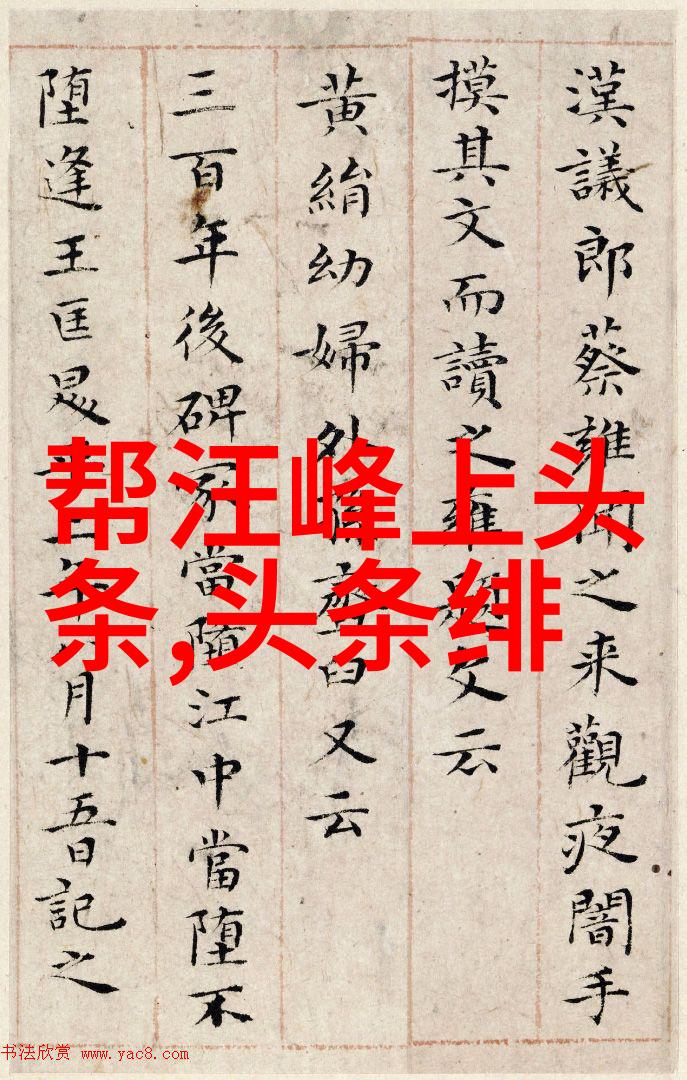 漢議郎蔡雍聞之来觀夜闇手
摸其文而讀之雍題文云
黄絹幼婦外孫臼又云
三百年後碑冢當堕江中當堕不
堕逢王匡二年月十五日記之
帮汪峰上头
条,头条绯
书法欣赏 www.yac8.com